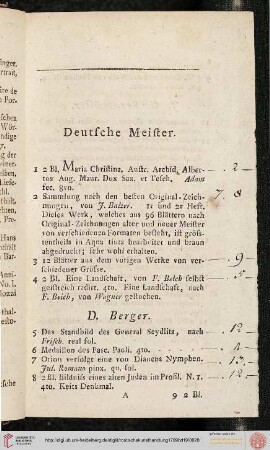 Deutsche Meister.
1 2 Bl. Maria Christina, Austr. Archid. Alber-
tus Aug. Maur. Dux Sax. et Tesch, Adam
fec. gvn.
2 —
2 Sammlung nach den besten Original-Zeich-
nungen, von J. Balzer. 11 und 2r Heft.
7. 8
Dieses Werk, welches aus 96 Blättern nach
Original-Zeichnungen alter und neuer Meister
von verschiedenen Formaten besteht, ist gröss-
tentheils in Aqua tinta bearbeitet und braun
abgedruckt; sehr wohl erhalten.
3 12 Blätter aus dem vorigen Werke von ver-
schiedener Grösse.
9 —
4 2 Bl. Eine Landschaft, von F. Beich selbst
geistreich radirt. 4to. Eine Landschaft, nach
F. Beich, von Wagner gestochen.
5 —
D. Berger.
5 Das Standbild des General Seydlitz, nach
Frisch. real fol.
12 —
6 Medaillon des Pasc. Paoli. 4to.
4 —
7 Orion verfolgt eine von Dianens Nymphen.
Jul. Romano pinx. qu. fol.
13 —
8 2 Bl. Bildniss eines alten Juden im Profil. N. 1.
4to. Keits Denkmal.
12 —
A 9 2 Bl.
UNIVERSITÄTS-
BIBLIOTHEK
HEIDELBERG